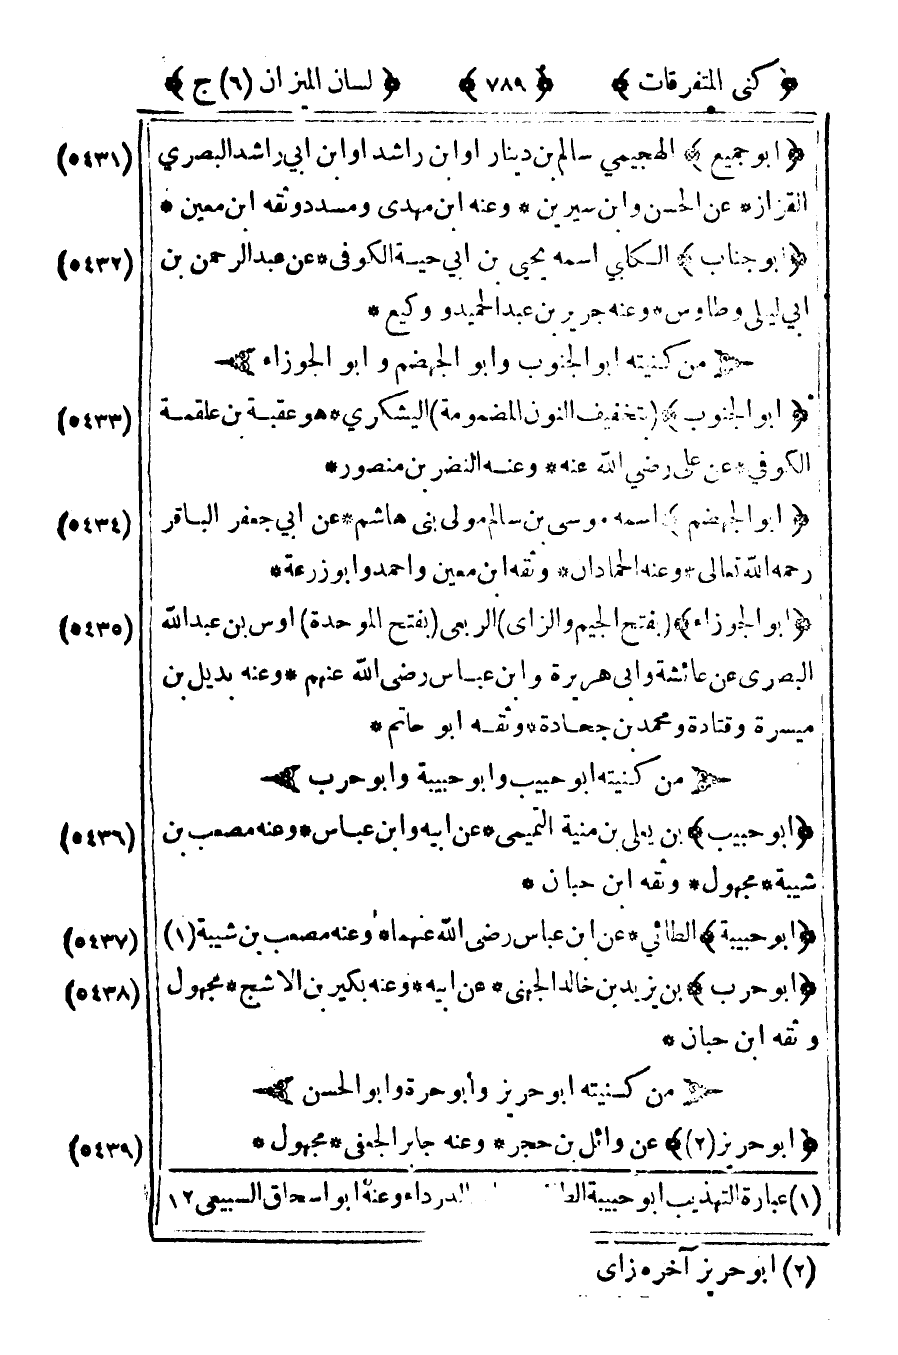 ﴿ كنى المتفرقات ﴾ ﴿ ٧٨٩ ﴾ ﴿ لسان الميزان (٦) ج ﴾
﴿ ابو جميع ﴾ الهجيمي سالم بن دينار او ابن راشد او ابن ابي راشد البصري (٥٤٣١)
القزاز * عن الحسن وابن سيرين * وعنه ابن مهدى ومسدد وثقه ابن معين *
﴿ ابو جناب ﴾ الكلبي اسمه يحيى بن ابي حية الكوفى * عن عبد الرحمن بن (٥٤٣٢)
ابي ليلى وطاوس * وعنه جرير بن عبد الحميد و وكيع *
من كنيته ابو الجنوب وابو الجهضم و ابو الجوزاء
﴿ ابو الجنوب ﴾ (بتخفيف النون المضمومة) اليشكري * هو عقبة بن علقمة (٥٤٣٣)
الكوفي * عن على رضي الله عنه * وعنه النضر بن منصور *
﴿ ابو الجهضم ﴾ اسمه موسى بن سالم مولى بنى هاشم * عن ابي جعفر الباقر (٥٤٣٤)
رحمه الله تعالى * وعنه الحمادان * وثقه ابن معين واحمد وابو زرعة *
﴿ ابو الجوزاء ﴾ (بفتح الجيم والزاى) الربعى (بفتح الموحدة) اوس بن عبد الله (٥٤٣٥)
البصرى عن عائشة وابى هريرة وابن عباس رضى الله عنهم * وعنه بديل بن
ميسرة وقتادة ومحمد بن جحادة * وثقه ابو حاتم *
من كنيته ابو حبيب وابو حبيبة وابو حرب
﴿ ابو حبيب ﴾ بن يعلى بن منية التميمى * عن ابيه وابن عباس * وعنه مصعب بن (٥٤٣٦)
شيبة * مجهول * وثقه ابن حبان *
﴿ ابو حبيبة ﴾ الطائي * عن ابن عباس رضى الله عنهما * وعنه مصعب بن شيبة (١) (٥٤٣٧)
﴿ ابو حرب ﴾ بن زيد بن خالد الجهنى * عن ابيه * وعنه بكير بن الاشج * مجهول (٥٤٣٨)
وثقه ابن حبان *
من كنيته ابو حريز وأبو حرة وابو الحسن
﴿ ابو حريز (٢) ﴾ عن وائل بن حجر * وعنه جابر الجعفى * مجهول * (٥٤٣٩)
(١) عبارة التهذيب ابو حبيبة الدرداء وعنه ابو اسحاق السبيعى ١٢
(٢) ابو حريز آخره زاى